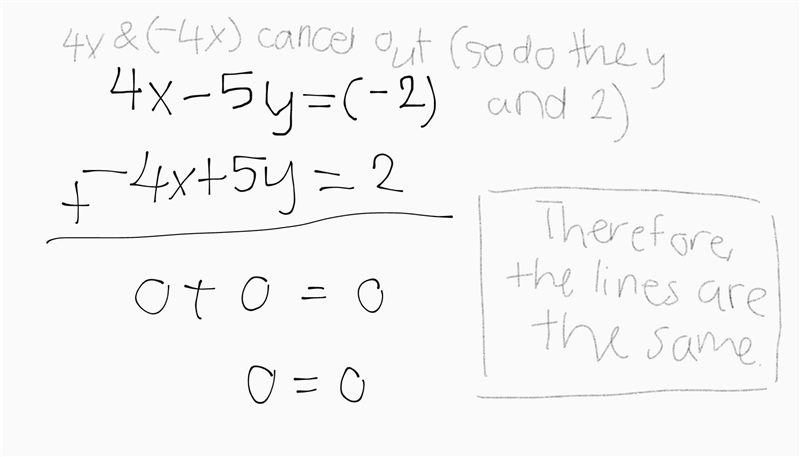 4x & (-4x) cancel out (so do the y
and 2)
4x-5y=(-2)
+ -4x+5y=2
0+0=0
0=0
Therefore,
the lines are
the same.